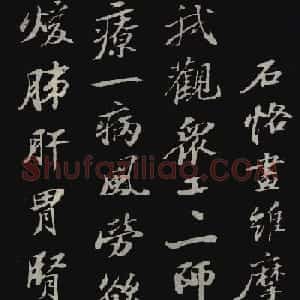 石恪畫維摩
我觀眾工二師
療一病風勞欲
煖肺肝胃腎
Shufaziliao.com